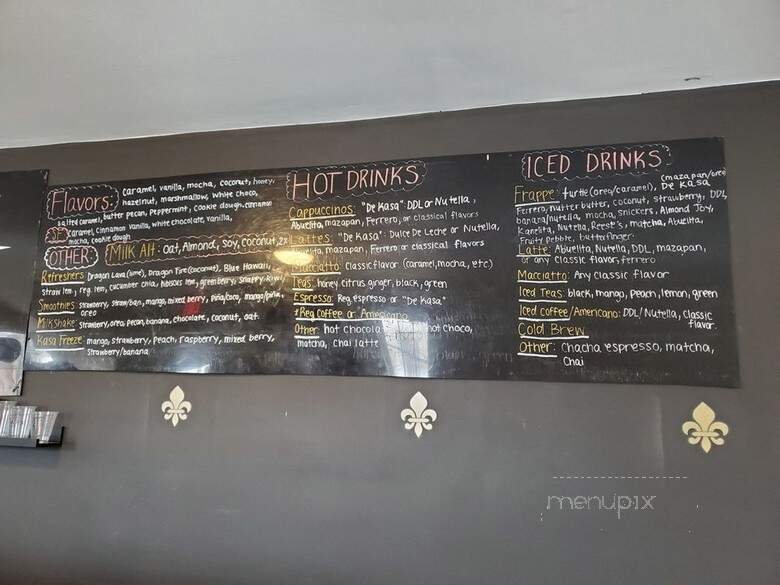 Flavors: caramel, vanilla, mocha, coconut, honey,
hazelnut, marshmallow, white choco,
salted caramel, butter pecan, peppermint, cookie dough, cinnamon
SF caramel, cinnamon vanilla, white chocolate, vanilla,
mocha, cookie dough
OTHER: Milk Alt: oat, Almond, Soy, coconut, 2%
Refreshers Dragon Lava (lime), Dragon Fire (coconut), Blue Hawaii,
straw lem, reg. lem, cucumber chia, hibiscus lem, greenberry, snappy kiwi,
Smoothies strawberry, straw/ban, mango, mixed berry, piña/coco, mango/
oreo
Milkshake strawberry, oreo, pecan, banana, chocolate, coconut, oat.
Kasa Freeze mango, strawberry, peach, raspberry, mixed berry,
strawberry/banana
HOT DRINKS
Cappuccinos: "De Kasa": DDL or Nutella,
Abuelita, mazapan, Ferrero, or classical flavors
Lattes: "De Kasa": Dulce De Leche or Nutella,
mazapan, Ferrero or classical flavors
Macchiato classic flavor (caramel, mocha, etc)
Teas: honey citrus ginger, black, green
Espresso: Reg. espresso or "De Kasa"
Reg coffee or Americano
Other: hot chocola hot choco,
matcha, chai latte
ICED DRINKS
Frappe: turtle (oreo/caramel), De Kasa (mazapan/oreo)
Ferrero, nutter butter, coconut, strawberry, DDL,
banana/nutella, mocha, snickers, Almond Joy,
Kanelita, Nutella, Reest's, matcha, Abuelita,
Fruity Pebble, butterfinger.
Latte: Abuelita, Nutella, DDL, mazapan,
or any classic flavor, ferrero
Macciatto: Any classic flavor
Iced Teas: black, mango, peach, lemon, green
Iced coffee/Americano: DDL/Nutella, classic
flavor.
Cold Brew
Other: Chacha espresso, matcha,
Chai
menupix